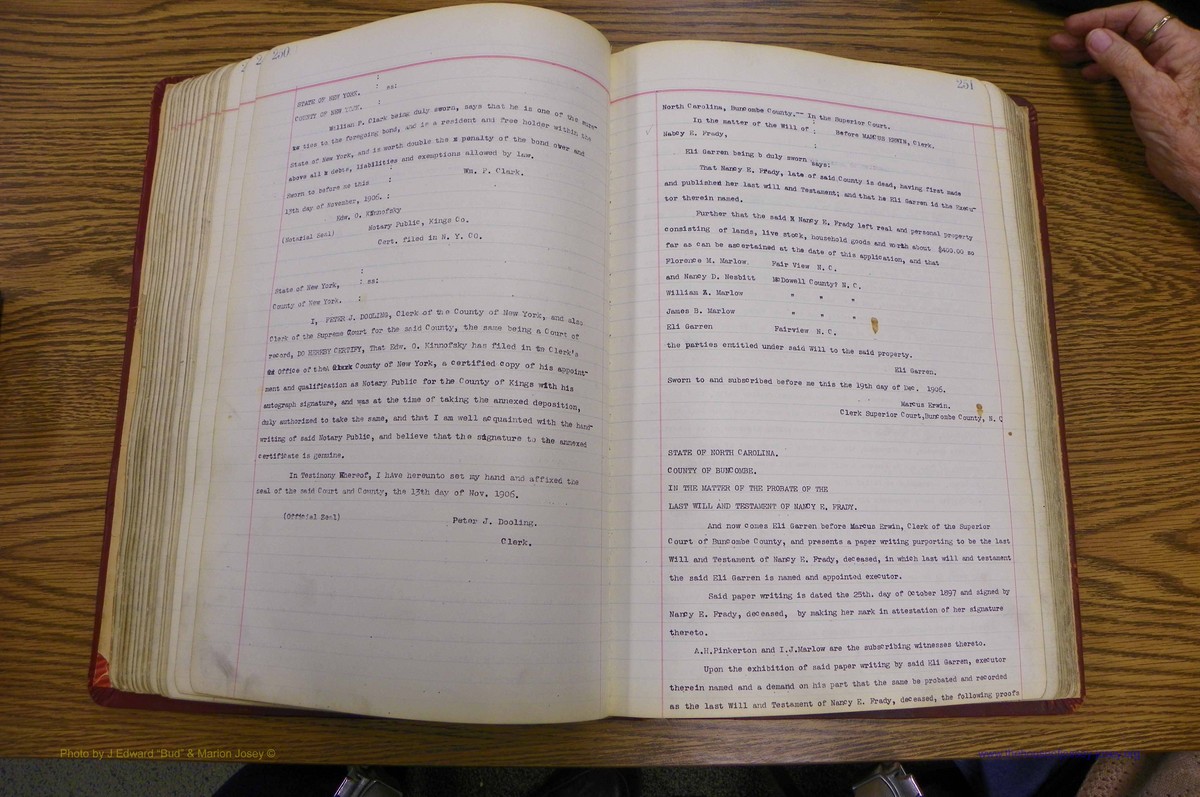 250
STATE OF NEW YORK. : ss:
COUNTY OF NEW YORK. :
William P. Clark being duly sworn, says that he is one of the sure-
ties to the foregoing bond, and is a resident and free holder within the
State of New York, and is worth double the x penalty of the bond over and
above all x debts, liabilities and exemptions allowed by law.
Sworn to before me this : Wm. P. Clark.
13th day of November, 1906. :
Edw. O. Kinnofsky
(Notarial Seal) Notary Public, Kings Co.
Cert. filed in N. Y. CO.
State of New York, : ss:
County of New York. :
I, PETER J. DOOLING, Clerk of the County of New York, and also
Clerk of the Supreme Court for the said County, the same being a Court of
record, DO HEREBY CERTIFY, That Edw. O. Kinnofsky has filed in to Clerk's
Office of that County of New York, a certified copy of his appoint-
ment and qualification as Notary Public for the County of Kings with his
autograph signature, and was at the time of taking the annexed deposition,
duly authorized to take the same, and that I am well acquainted with the hand-
writing of said Notary Public, and believe that the signature to the annexed
certificate is genuine.
In Testimony Whereof, I have hereunto set my hand and affixed the
seal of the said Court and County, the 13th day of Nov. 1906.
(Official Seal) Peter J. Dooling.
Clerk.
251
North Carolina, Buncombe County.-- In the Superior Court.
In the matter of the Will of : Before MARCUS ERWIN, Clerk.
Nancy E. Frady, :
Eli Garren being b duly sworn says:
That Nancy E. Frady, late of said County is dead, having first made
and published her last will and Testament; and that he Eli Garren id the Execu-
tor therein named.
Further that the said X Nancy E. Frady left real and personal property
consisting of lands, live stock, household goods and worth about $400.00 so
far as can be ascertained at the date of this application, and that
Florence M. Marlow Fair View N. C.
and Nancy D. Nesbitt McDowell County? N. C.
William Z. Marlow " " "
James B. Marlow " " "
Eli Garren Fairview N. C.
the parties entitled under said Will to the said property.
Eli Garren.
Sworn to and subscribed before me this the 19th day of Dec. 1906.
Marcus Erwin.
Clerk Superior Court,Buncombe County, N. C
STATE OF NORTH CAROLINA.
COUNTY OF BUNCOMBE.
IN THE MATTER OF THE PROBATE OF THE
LAST WILL AND TESTAMENT OF NANCY E. FRADY.
And now comes Eli Garren before Marcus Erwin, Clerk of the Superior
Court of Buncombe County, and presents a paper writing purporting to be the last
Will and Testament of Nancy E. Frady, deceased, in which last will and testament
the said Eli Garren is named and appointed executor.
Said paper writing is dated the 25th. day of October 1897 and signed by
Nancy E. Frady, deceased, by making her mark in attestation of her signature
thereto.
A.H.Pinkerton and I.J.Marlow are the subscribing witnesses thereto.
Upon the exhibition of said paper writing by said Eli Garren, executor
therein named and a demand on his part that the same be probated and recorded
as the last Will and Testament of Nancy E. Frady, deceased, the following proofs
Photo by J Edward "Bud" & Marion Josey ©